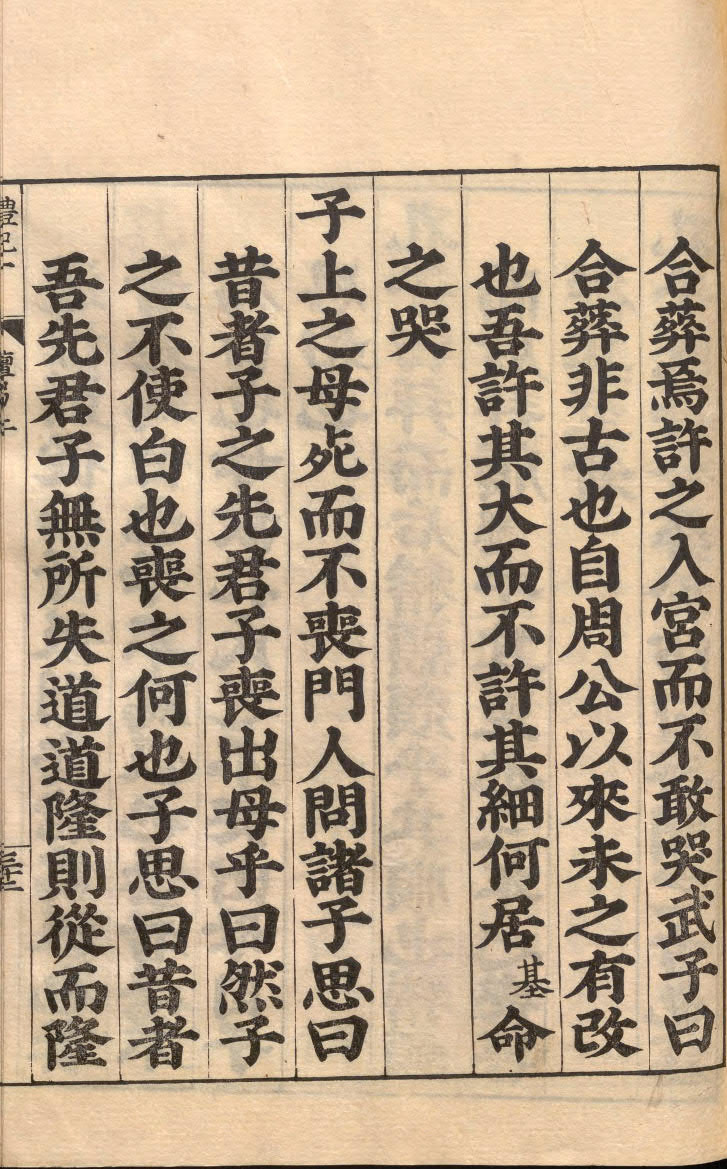 合葬焉許之入宮而不敢哭武子曰
合葬非古也自周公以來未之有改
也吾許其大而不許其細何居基命
之哭
子上之母死而不喪門人問諸子思曰
昔者子之先君子喪出母乎曰然子
之不使白也喪之何也子思曰昔者
吾先君子無所失道道隆則從而隆